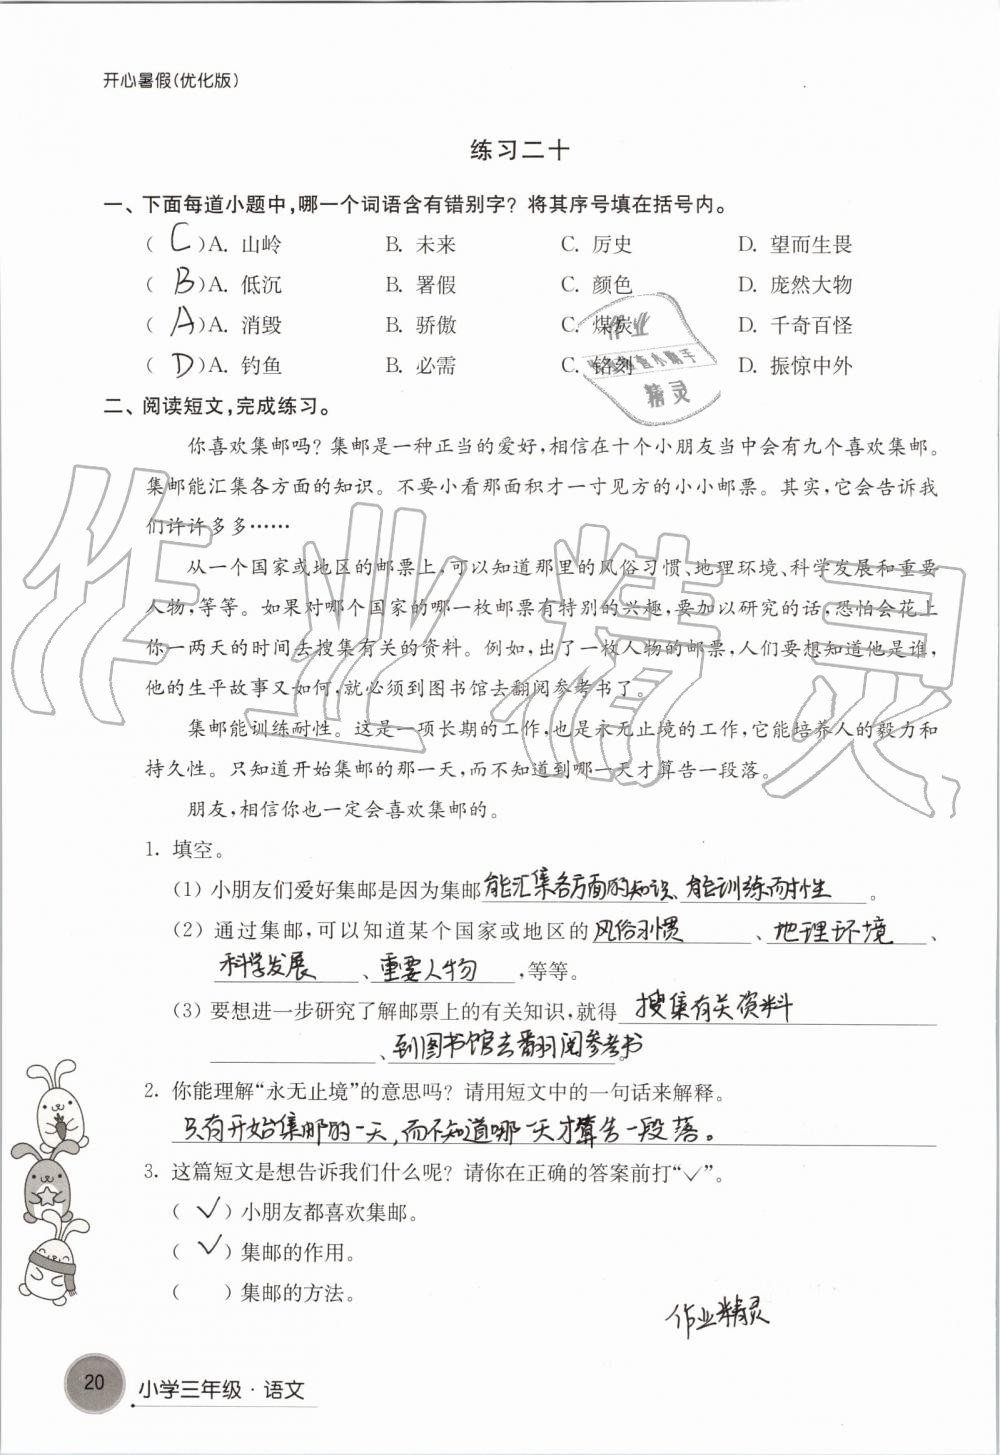 开心暑假(优化版)
练习二十
一、下面每道小题中,哪一个词语含有错别字? 将其序号填在括号内。
( C )A. 山岭 B. 未来 C. 厉史 D. 望而生畏
( B )A. 低沉 B. 署假 C. 颜色 D. 庞然大物
( A )A. 消毁 B. 骄傲 C. 煤炭 D. 千奇百怪
( D )A. 钓鱼 B. 必需 C. 铭刻 D. 振惊中外
作业
精灵
二、阅读短文,完成练习。
你喜欢集邮吗? 集邮是一种正当的爱好,相信在十个小朋友当中会有九个喜欢集邮。
集邮能汇集各方面的知识。不要小看那面积才一寸见方的小小邮票。其实,它会告诉我
们许许多多……
从一个国家或地区的邮票上,可以知道那里的风俗习惯、地理环境、科学发展和重要
人物,等等。如果对哪个国家的哪一枚邮票有特别的兴趣,要加以研究的话,恐怕会花上
你一两天的时间去搜集有关的资料。例如,出了一枚人物的邮票,人们要想知道他是谁,
他的生平故事又如何,就必须到图书馆去翻阅参考书了。
集邮能训练耐性。这是一项长期的工作,也是永无止境的工作,它能培养人的毅力和
持久性。只知道开始集邮的那一天,而不知道到哪一天才算告一段落。
朋友,相信你也一定会喜欢集邮的。
作业精灵
1. 填空。
(1) 小朋友们爱好集邮是因为集邮能汇集各方面的知识、能训练耐性。
(2) 通过集邮,可以知道某个国家或地区的风俗习惯、地理环境、
科学发展、重要人物,等等。
(3) 要想进一步研究了解邮票上的有关知识,就得搜集有关资料
、到图书馆去翻阅参考书。
2. 你能理解“永无止境”的意思吗? 请用短文中的一句话来解释。
只有开始集邮的一天,而不知道哪一天才算告一段落。
3. 这篇短文是想告诉我们什么呢? 请你在正确的答案前打“✓”。
( ✓ )小朋友都喜欢集邮。
( ✓ )集邮的作用。
( )集邮的方法。
作业精灵
20
小学三年级·语文